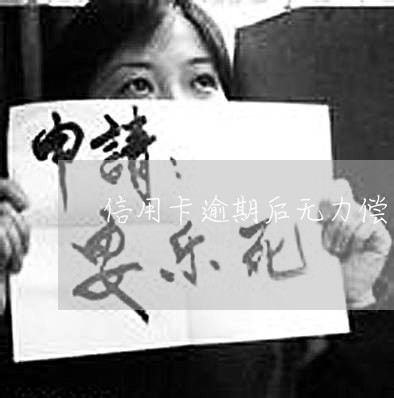 申請：
信用卡逾期后无力偿
安乐死